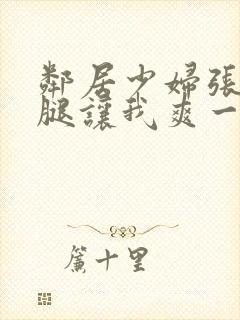 鄰居少婦張
腿讓我爽一
簾十里